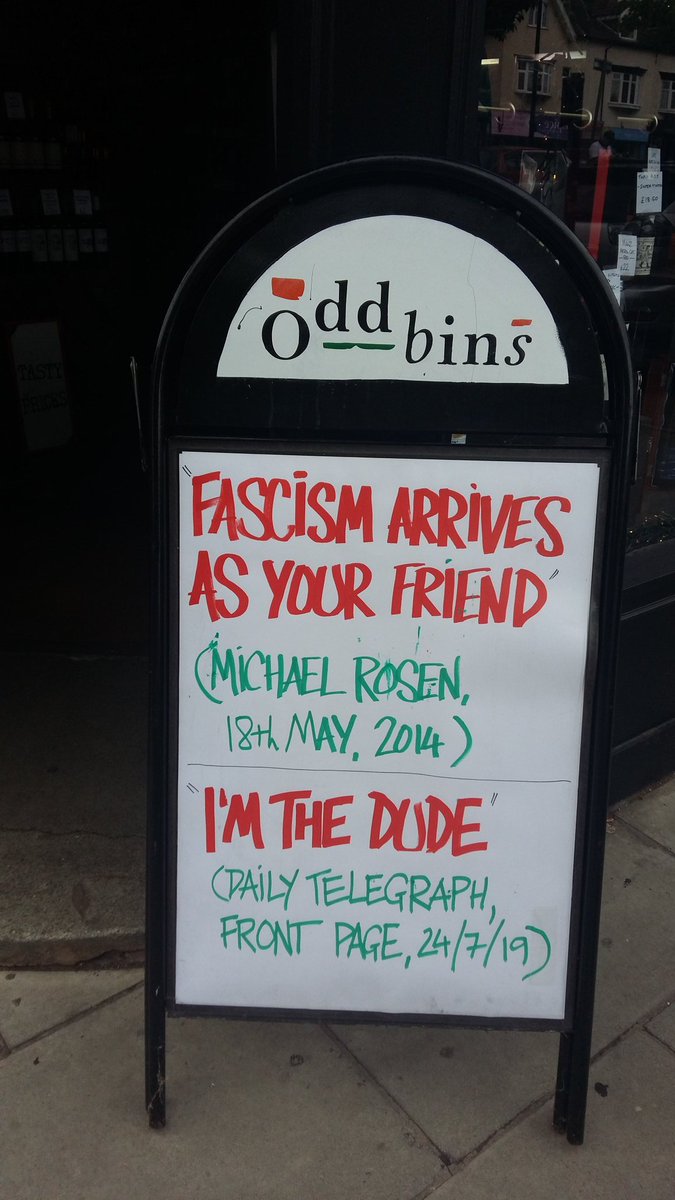 Oddbins
"FASCISM ARRIVES
AS YOUR FRIEND"
(MICHAEL ROSEN,
18th MAY, 2014)
"I'M THE DUDE"
(DAILY TELEGRAPH,
FRONT PAGE, 24/7/19)
TASTY
PRICES
£18.50